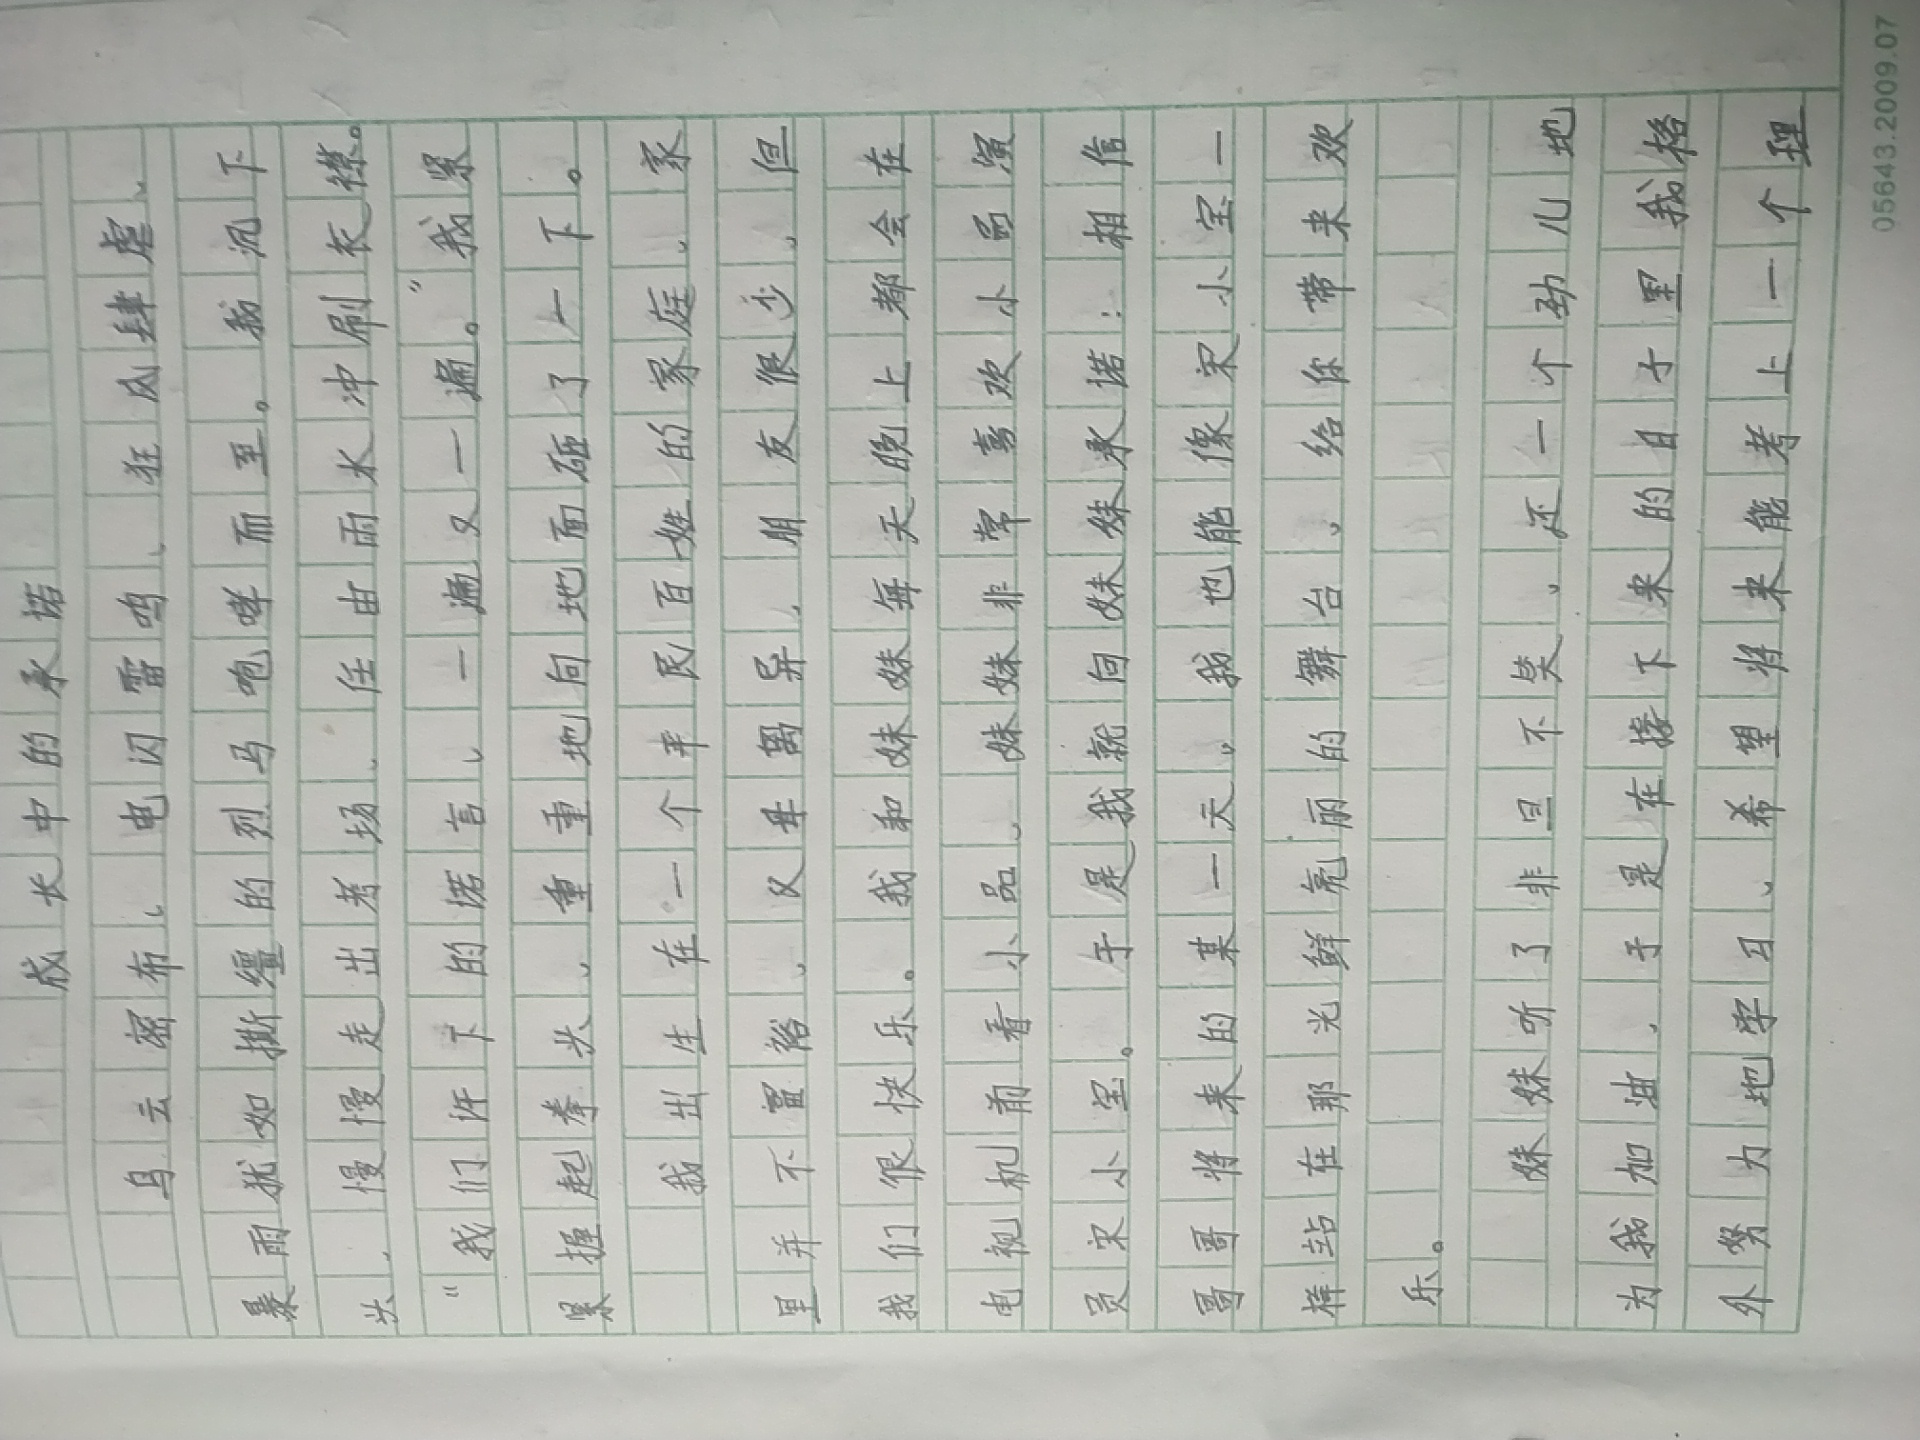 成长中的承诺
乌云密布、电闪雷鸣、狂风肆虐、
暴雨犹如撕缰的烈马咆哮而至。我沉下
头，慢慢走出考场，任由雨水冲刷衣襟。
“我们许下的诺言，一遍又一遍。”我紧
紧握起拳头，重重地向地面砸了一下。
我出生在一个平民百姓的家庭，家
里并不富裕，父母离异，朋友很少，但
我们很快乐。我和妹妹每天晚上都会在
电视机前看小品，妹妹非常喜欢小品演
员宋小宝。于是我就向妹妹承诺：相信
哥哥将来的某一天，我也能像宋小宝一
样站在那光鲜亮丽的舞台，给你带来欢
乐。
妹妹听了非旦不笑，还一个劲儿地
为我加油，于是在接下来的日子里我格
外努力地学习，希望将来能考上一个理
05643.2009.07